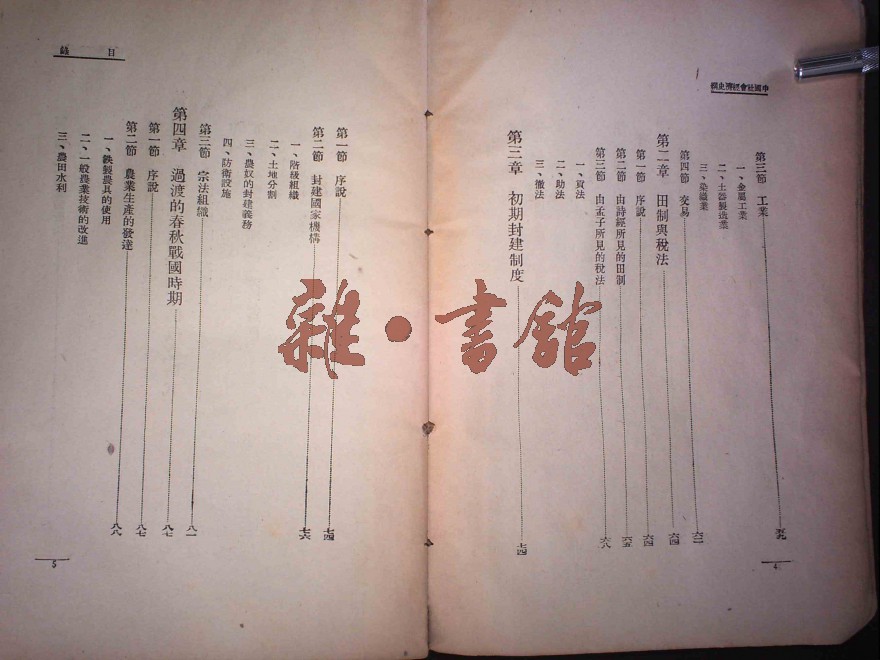 中國社會經濟史綱
第三節 工業 五九
一、金屬工業
二、土器製造業
三、染織業
第四節 交易 六二
第二章 田制與稅法 六四
第一節 序說 六四
第二節 由詩經所見的田制 六五
第三節 由孟子所見的稅法 六八
一、貢法
二、助法
三、徹法
第三章 初期封建制度 七四
4
目錄
第一節 序說 七四
第二節 封建國家機構 七六
一、階級組織
二、土地分割
三、農奴的封建義務
四、防衛設施
第三節 宗法組織 八一
第四章 過渡的春秋戰國時期 八七
第一節 序說 八七
第二節 農業生產的發達 八八
一、鉄製農具的使用
二、一般農業技術的改進
三、農田水利
5
雜·書館